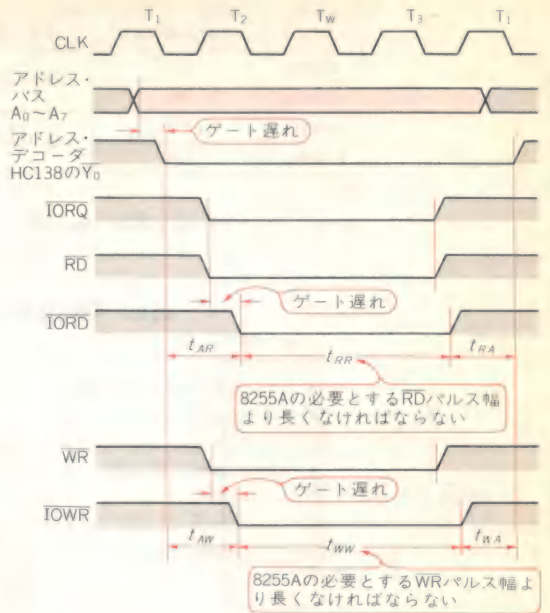 T₁ T₂ Tw T₃ T₁
CLK
アドレス・
バス
A₀～A₇
ゲート遅れ
アドレス・
デコーダ
HC138のY̅₀
I̅O̅R̅Q̅
R̅D̅
ゲート遅れ
I̅O̅R̅D̅
t_AR t_RR t_RA
8255Aの必要とするR̅D̅パルス幅
より長くなければならない
W̅R̅
ゲート遅れ
I̅O̅W̅R̅
t_AW t_WW t_WA
8255Aの必要とするWRパルス幅よ
り長くなければならない